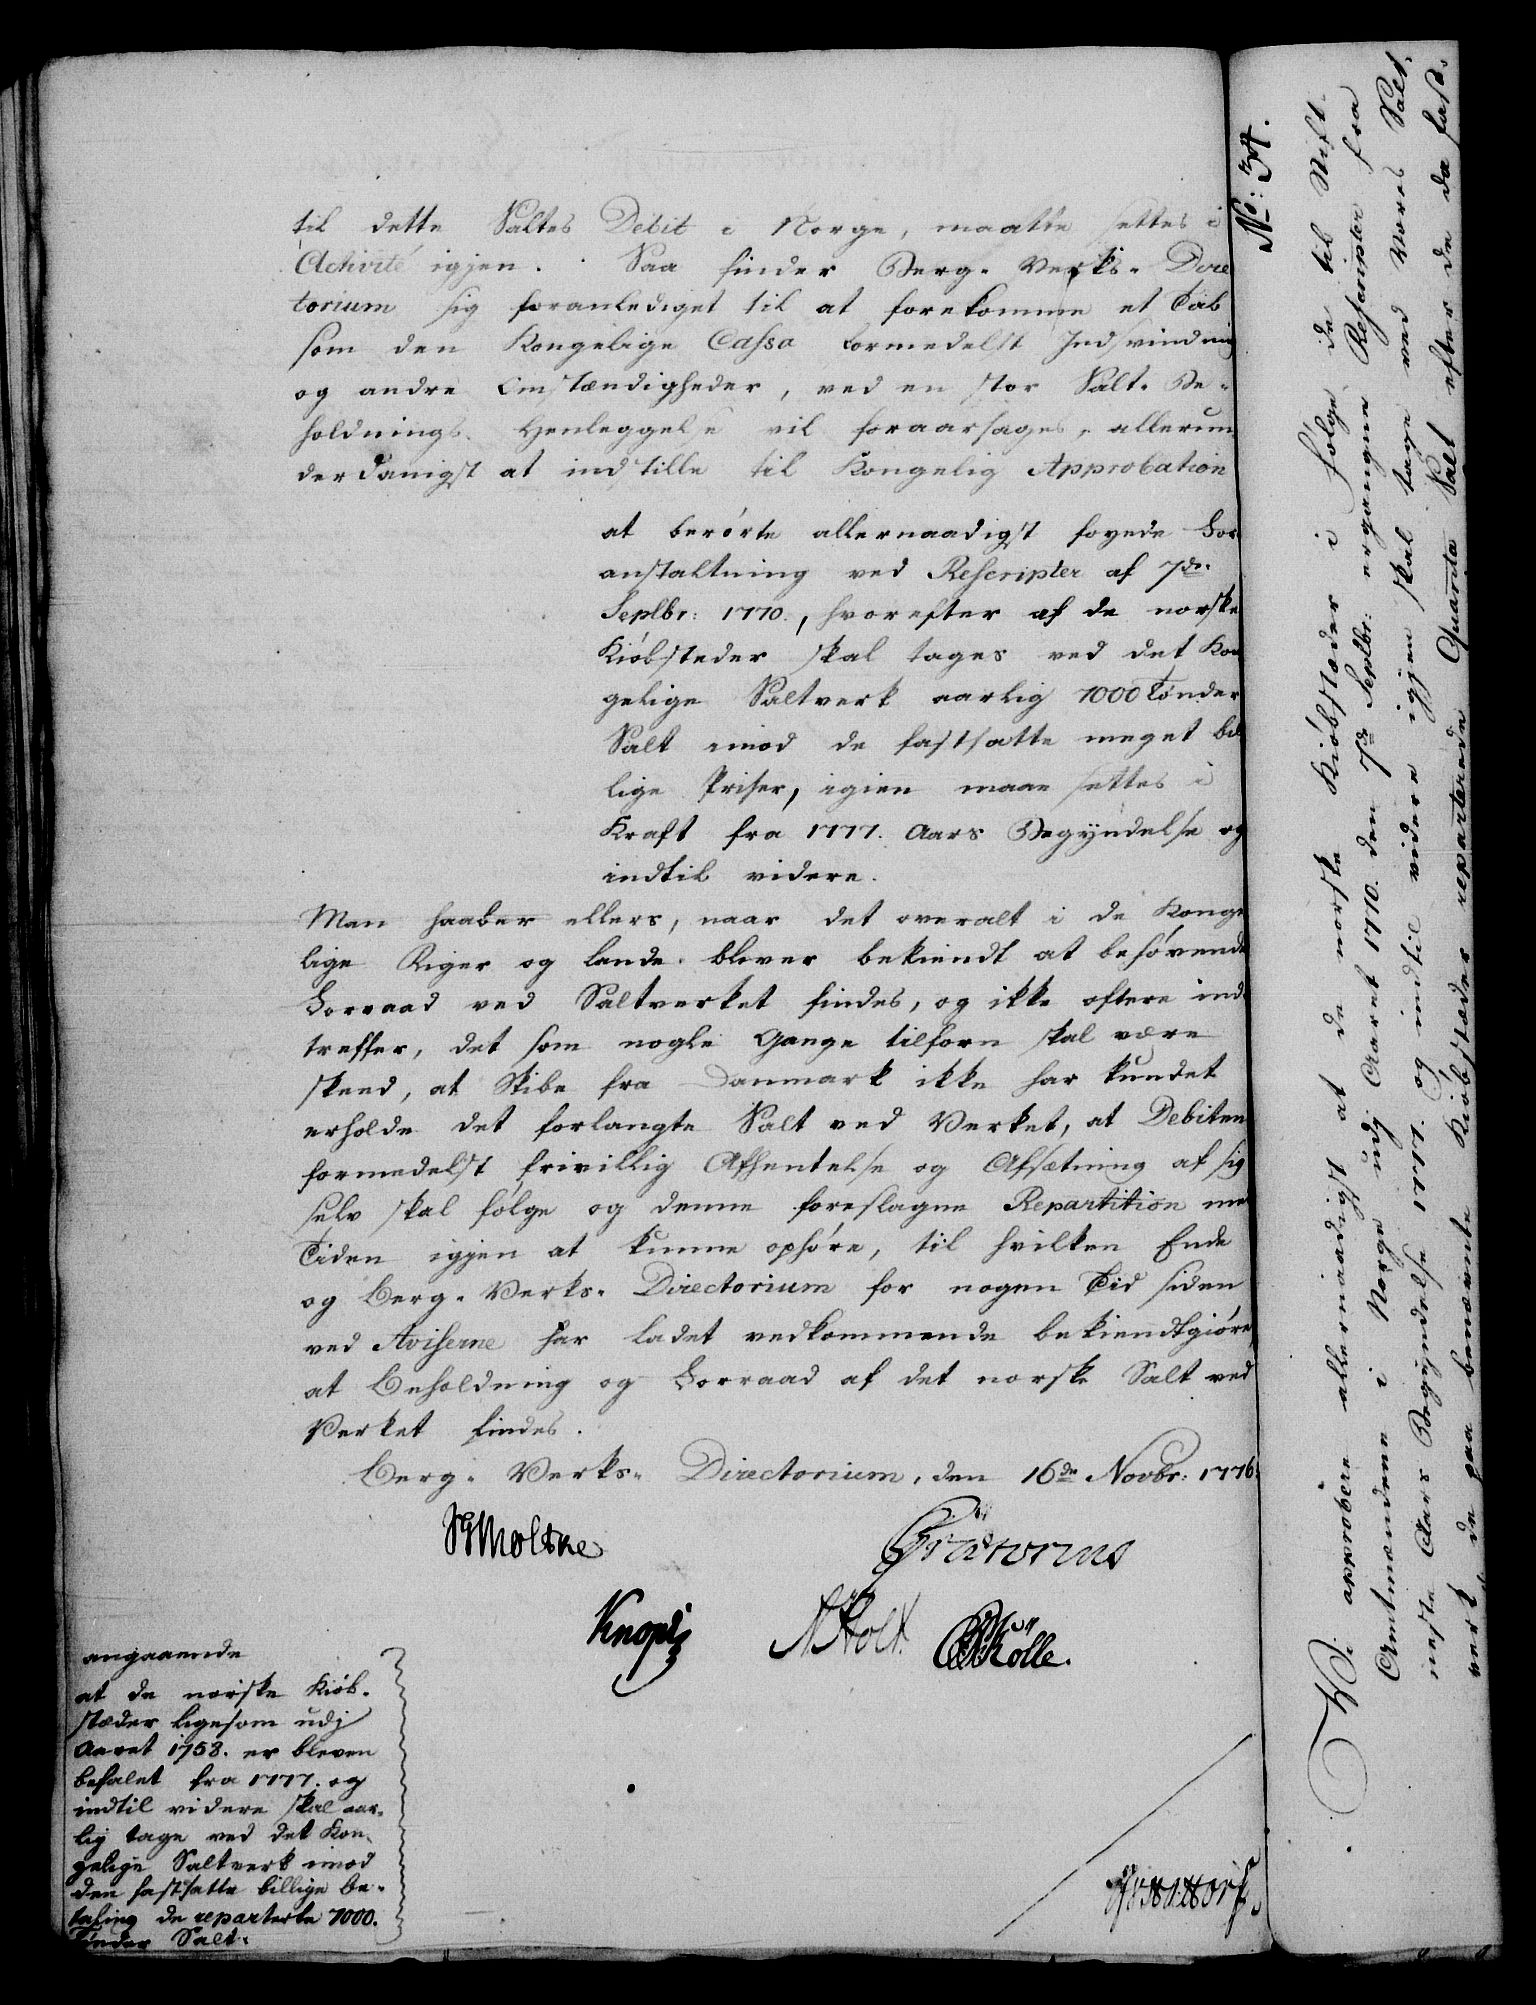 til dette Saltes Debit i Norge, maatte settes i
Activité igjen. Saa finder Berg- Verks- Dire
torium sig foranlediget til at forekomme et Tab
som den Kongelige Cassa formedelst Indsvinding
og andre Omstændigheder, ved en stor Salt- Be-
holdnings Henleggelse vil foraarsages, allerun-
derdanigst at indstille til Kongelig Approbation
at berørte allernaadigst føyede For
anstaltning ved Rescripter af 7de
Septbr: 1770., hvorefter af de norske
Kiøbsteder skal tages ved det Kon
gelige Saltverk aarlig 7000 Tønder
Salt imod de fastsatte meget bil
lige Priser, igien maae settes i
Kraft fra 1777. Aars Begyndelse og
indtil videre.
Man haaber ellers, naar det overalt i de Konge
lige Riger og Lande bliver bekiendt at behøvende
Forraad ved Saltverket findes, og ikke oftere ind-
treffer, det som nogle Gange tilforn skal være
skeed, at Skibe fra Danmark ikke har kundet
erholde det forlangte Salt ved Verket, at Debiten
formedelst frivillig Afhentelse og Afsætning af sig
selv skal følge og denne foreslagne Repartition med
Tiden igjen at kunne ophøre, til hvilken Ende
og Berg- Verks- Directorium for nogen Tid siden
ved Aviserne har ladet vedkommende bekiendtgiøre
at Beholdning og Forraad af det norske Salt ved
Verket findes.
Berg- Verks- Directorium, den 16de Novbr: 1776.
Moltke Prætorius
Knoph Holt. Kølle.
angaaende
at de norske Kiøb-
stæder ligesom udj
Aaret 1758. er bleven
befalet fra 1777. og
indtil videre skal aar-
lig tage ved det Kon-
gelige Saltverk imod
den fastsatte billige be-
taling de reparterte 7000.
Tønder Salt.
No: 34.
Vi approbere allernaadigst at de norske Kiøbstæder i følge de til Stift-
Amtmændene i Norge udj Aaret 1770. den 7de Septbr: ergangne Rescripter fra
neste Aars Begyndelse 1777. og indtil videre igjen skal tage ved Vores Salt-
verk de paa benævnte Kiøbstæder reparterede Quantita Salt efter de da fast-